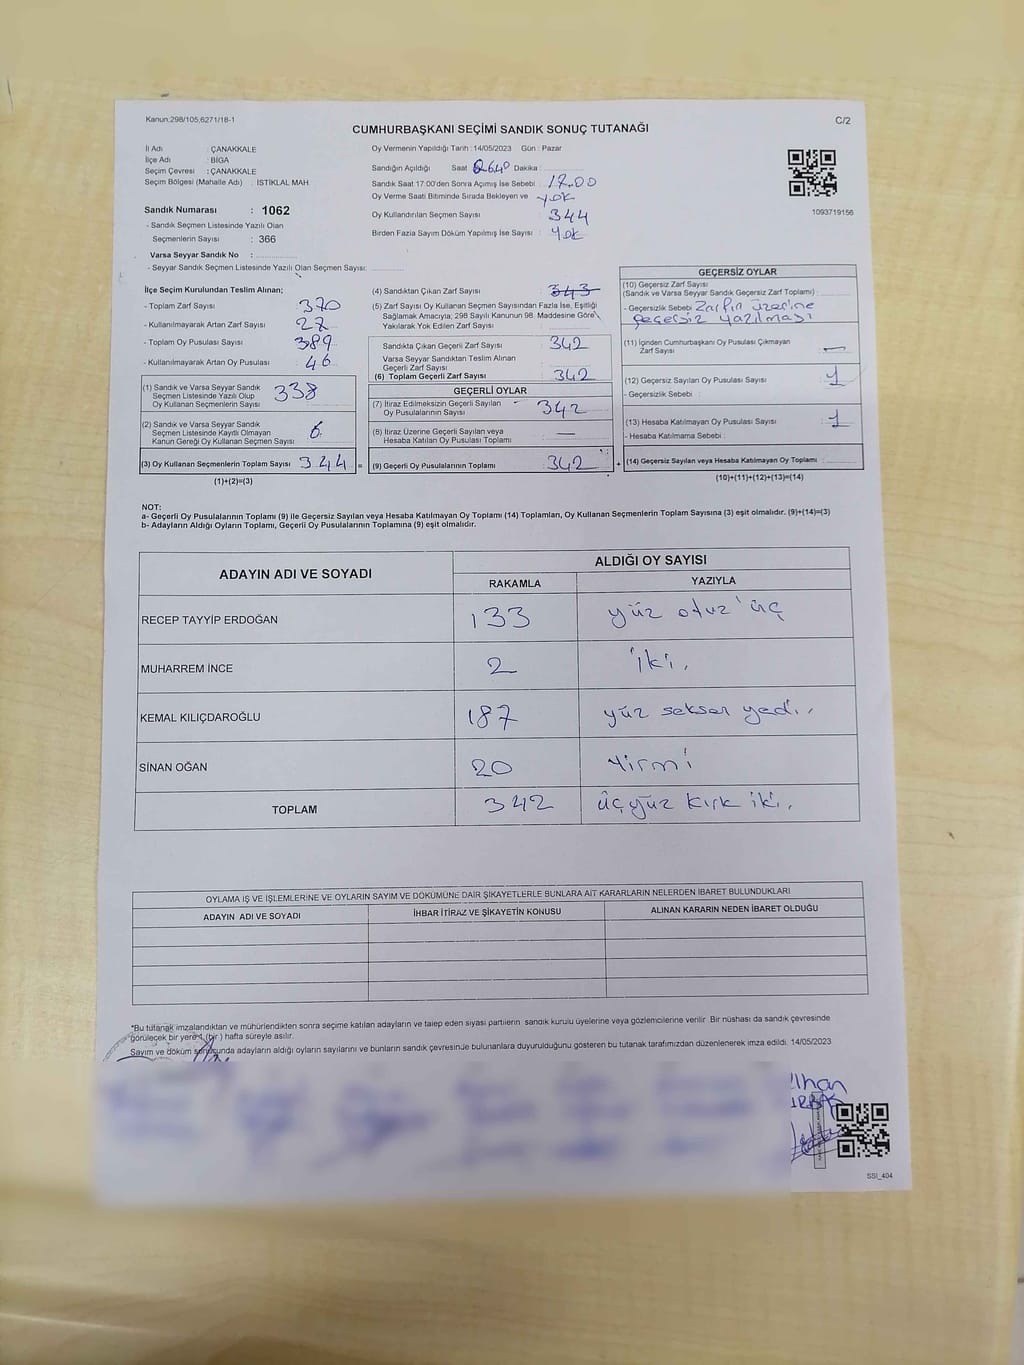 Kanun:298/105,6271/18-1
C/2
CUMHURBAŞKANI SEÇİMİ SANDIK SONUÇ TUTANAĞI
İl Adı : ÇANAKKALE
İlçe Adı : BİGA
Seçim Çevresi : ÇANAKKALE
Seçim Bölgesi (Mahalle Adı) : İSTİKLAL MAH
Sandık Numarası : 1062
- Sandık Seçmen Listesinde Yazılı Olan
Seçmenlerin Sayısı : 366
Varsa Seyyar Sandık No :
- Seyyar Sandık Seçmen Listesinde Yazılı Olan Seçmen Sayısı:
Oy Vermenin Yapıldığı Tarih : 14/05/2023 Gün : Pazar
Sandığın Açıldığı Saat Dakika :
Sandık Saat 17:00'den Sonra Açımış İse Sebebi : 17.00
Oy Verme Saati Bitiminde Sırada Bekleyen ve yok
Oy Kullandırılan Seçmen Sayısı 344
Birden Fazla Sayım Döküm Yapılmış İse Sayısı : Yok
1093719156
İlçe Seçim Kurulundan Teslim Alınan;
- Toplam Zarf Sayısı 370
- Kullanılmayarak Artan Zarf Sayısı 27
- Toplam Oy Pusulası Sayısı 389
- Kullanılmayarak Artan Oy Pusulası 46
(1) Sandık ve Varsa Seyyar Sandık
Seçmen Listesinde Yazılı Olup
Oy Kullanan Seçmenlerin Sayısı 338
(2) Sandık ve Varsa Seyyar Sandık
Seçmen Listesinde Kayıtlı Olmayan
Kanun Gereği Oy Kullanan Seçmen Sayısı 6
(3) Oy Kullanan Seçmenlerin Toplam Sayısı 344 =
(1)+(2)=(3)
(4) Sandıktan Çıkan Zarf Sayısı 343
(5) Zarf Sayısı Oy Kullanan Seçmen Sayısından Fazla İse, Eşitliği
Sağlamak Amacıyla, 298 Sayılı Kanunun 98. Maddesine Göre
Yakılarak Yok Edilen Zarf Sayısı
Sandıkta Çıkan Geçerli Zarf Sayısı 342
Varsa Seyyar Sandıktan Teslim Alınan
Geçerli Zarf Sayısı
(6) Toplam Geçerli Zarf Sayısı 342
GEÇERLİ OYLAR
(7) İtiraz Edilmeksizin Geçerli Sayılan
Oy Pusulalarının Sayısı 342
(8) İtiraz Üzerine Geçerli Sayılan veya
Hesaba Katılan Oy Pusulası Toplamı —
(9) Geçerli Oy Pusulalarının Toplamı 342 +
GEÇERSİZ OYLAR
(10) Geçersiz Zarf Sayısı
(Sandık ve Varsa Seyyar Sandık Geçersiz Zarf Toplamı) :
- Geçersizlik Sebebi Zarfın üzerine
geçersiz yazılması
(11) İçinden Cumhurbaşkanı Oy Pusulası Çıkmayan
Zarf Sayısı —
(12) Geçersiz Sayılan Oy Pusulası Sayısı 1
- Geçersizlik Sebebi :
(13) Hesaba Katılmayan Oy Pusulası Sayısı 1
- Hesaba Katılmama Sebebi :
(14) Geçersiz Sayılan veya Hesaba Katılmayan Oy Toplamı
(10)+(11)+(12)+(13)=(14)
NOT:
a- Geçerli Oy Pusulalarının Toplamı (9) ile Geçersiz Sayılan veya Hesaba Katılmayan Oy Toplamı (14) Toplamları, Oy Kullanan Seçmenlerin Toplam Sayısına (3) eşit olmalıdır. (9)+(14)=(3)
b- Adayların Aldığı Oyların Toplamı, Geçerli Oy Pusulalarının Toplamına (9) eşit olmalıdır.
ADAYIN ADI VE SOYADI
ALDIĞI OY SAYISI
RAKAMLA YAZIYLA
RECEP TAYYİP ERDOĞAN 133 yüz otuz üç
MUHARREM İNCE 2 iki.
KEMAL KILIÇDAROĞLU 187 yüz seksen yedi.
SİNAN OĞAN 20 Yirmi
TOPLAM 342 üçyüz kırk iki.
OYLAMA İŞ VE İŞLEMLERİNE VE OYLARIN SAYIM VE DÖKÜMÜNE DAİR ŞİKAYETLERLE BUNLARA AİT KARARLARIN NELERDEN İBARET BULUNDUKLARI
ADAYIN ADI VE SOYADI İHBAR İTİRAZ VE ŞİKAYETİN KONUSU ALINAN KARARIN NEDEN İBARET OLDUĞU
*Bu tutanak imzalandıktan ve mühürlendikten sonra seçime katılan adayların ve talep eden siyasi partilerin sandık kurulu üyelerine veya gözlemcilerine verilir .Bir nüshası da sandık çevresinde
görülecek bir yere 1 (bir ) hafta süreyle asılır.
Sayım ve döküm sonucunda adayların aldığı oyların sayılarını ve bunların sandık çevresinde bulunanlara duyurulduğunu gösteren bu tutanak tarafımızdan düzenlenerek imza edildi. 14/05/2023
İlhan
SSİ_404